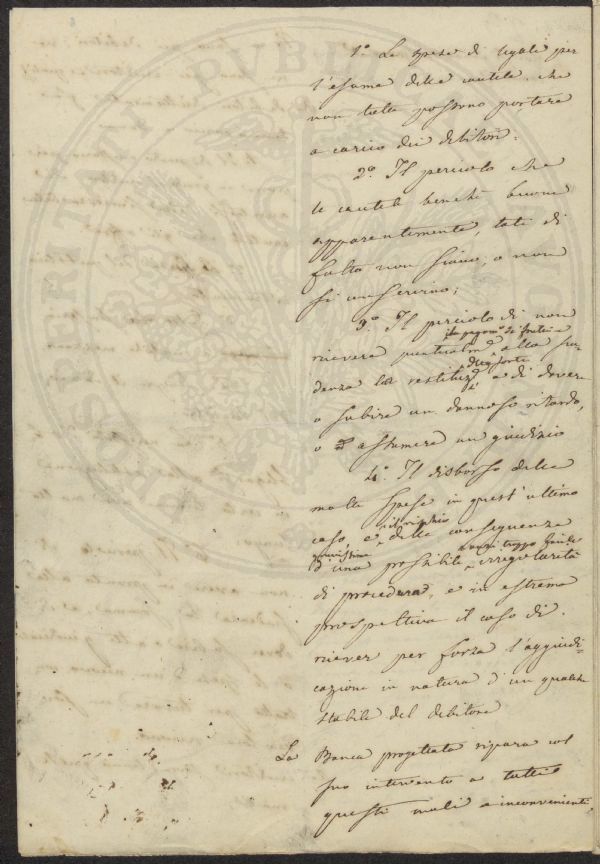 1º Le spese di legali per
l'esame delle cautele, che
non tutte possono portarsi
a carico dei debitori.
2º. Il pericolo che
le cautele benchè buone
apparentemente, tali di
fatto non siano, o non
si conservino;
3º. Il pericolo di non
il pagam.º de' frutti e
ricevere puntualm.e alla sca-
della sorte
denza la restituz.e e di dovere
o subire un dannoso ritardo,
o assumere un giudizio
4º. Il disborso delle
molte spese in quest'ultimo
caso, e delle conseguenze
il rischio
gravissime
d'una possibile irregolarità
di procedura, e in estrema
prospettiva il caso di
ricever per forza l'aggiudi-
cazione in natura d'un qualche
stabile del debitore
La Banca progettata ripara col
suo intervento a tutti
questi mali e inconvenienti